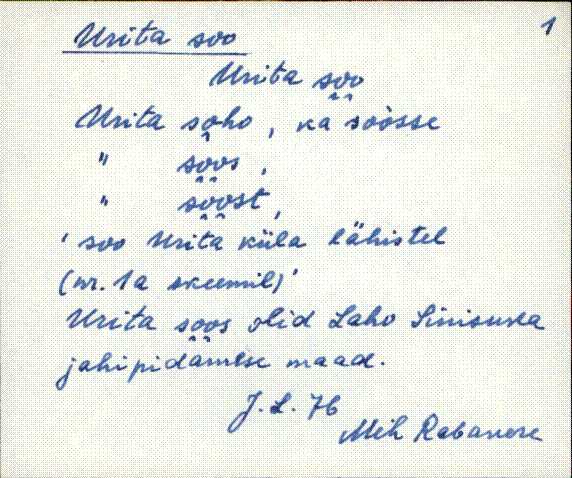 1
Urita soo
Urita soo
Urita soho, ka soosse
" soos,
" soost,
'soo Urita küla lähistel
(nr. 1a skeemil)'
Urita soos olid Laho Sinisuka
jahipidamise maad.
J. L. 76
Mih Rabavere